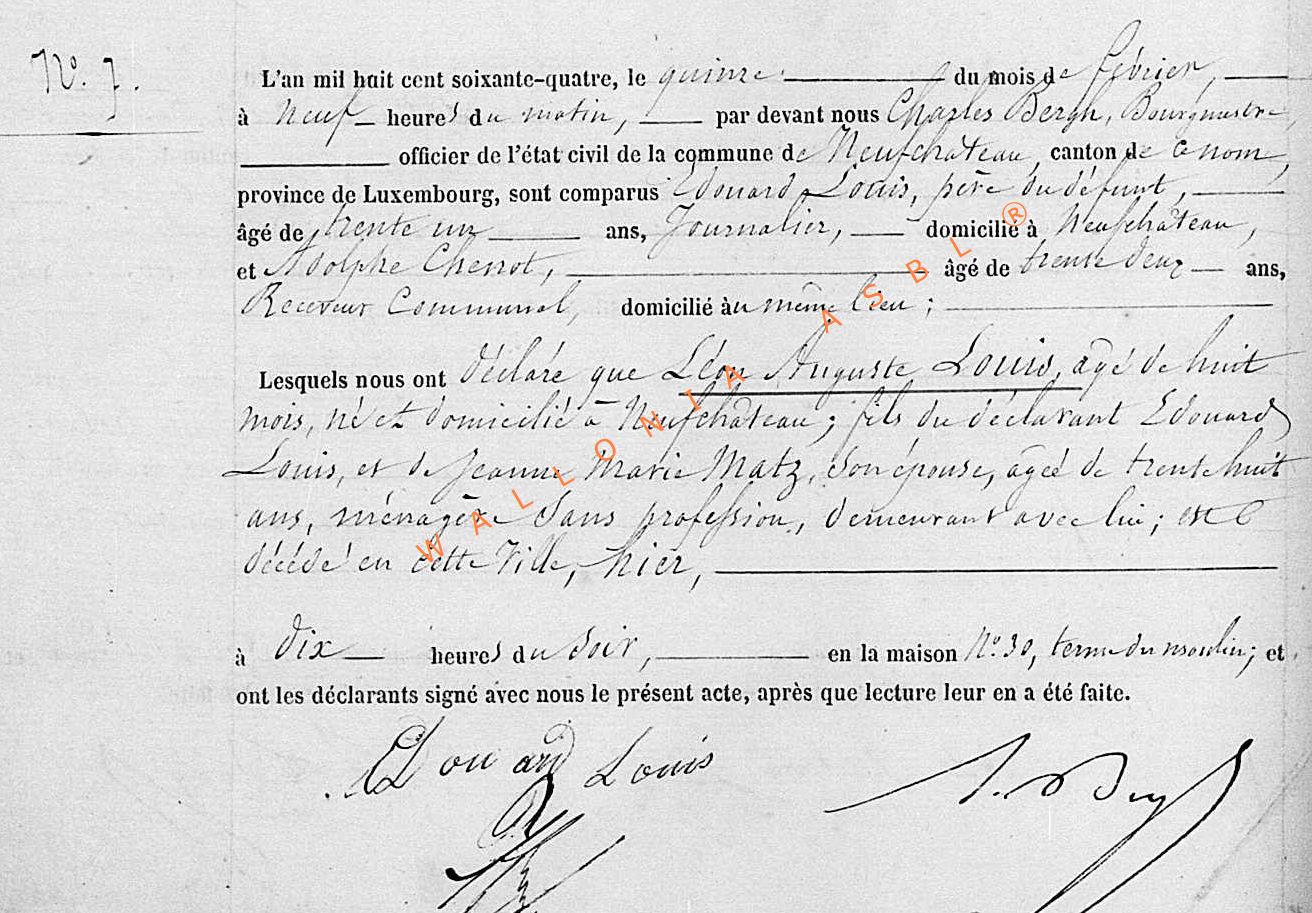 N.° 7.
L'an mil huit cent soixante-quatre, le quinze du mois de février,
à neuf heures du matin, par devant nous Charles Bergh, Bourgmestre,
officier de l'état civil de la commune de Neufchâteau, canton de ce nom,
province de Luxembourg, sont comparus Edouard Louis, père du défunt,
âgé de trente un ans, Journalier, domicilié à Neufchâteau,
et Adolphe Chenot, âgé de trente deux ans,
Receveur Communal, domicilié au même lieu ;
Lesquels nous ont déclaré que Léon Auguste Louis, agé de huit
mois, né et domicilié à Neufchâteau ; fils du déclarant Edouard
Louis, et de Jeanne Marie Matz, son épouse, agée de trente huit
ans, ménagère sans profession, demeurant avec lui ; est
décédé en cette Ville, hier,
à dix heures du soir, en la maison N.° 30, terme du moulin ; et
ont les déclarants signé avec nous le présent acte, après que lecture leur en a été faite.
Edouard Louis
WALLONIA ASBL ®